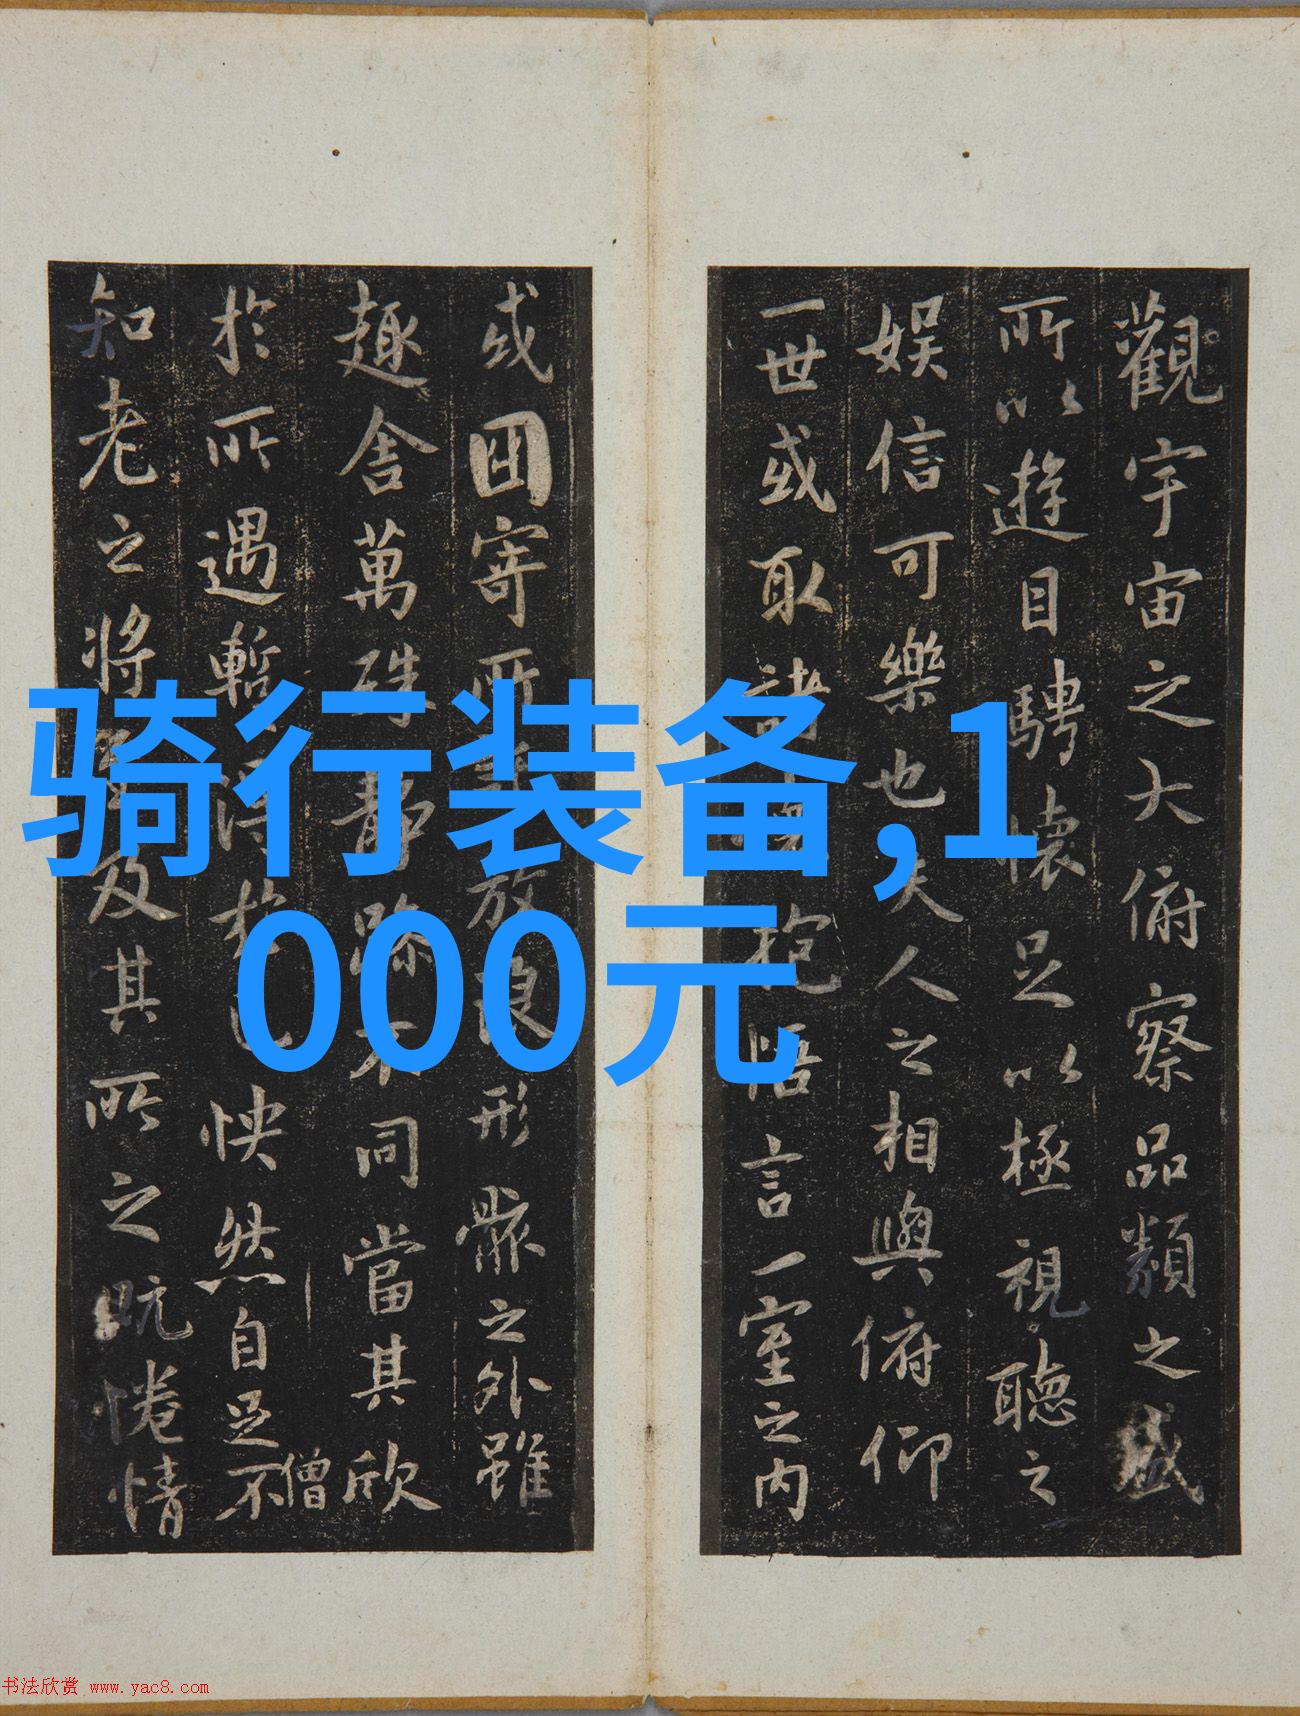 觀宇宙之大俯察品類之盛
所以遊目騁懷足以極視聽之
娛信可樂也夫人之相與俯仰
一世或取諸抱悟言一室之內
或因寄所放浪形骸之外雖
趣舍萬殊靜躁不同當其欣
僧
於所遇暫得於己怏然自足不
知老之將至及其所之既惓情
骑行装备,1
000元
书法欣赏 www.yac8.com